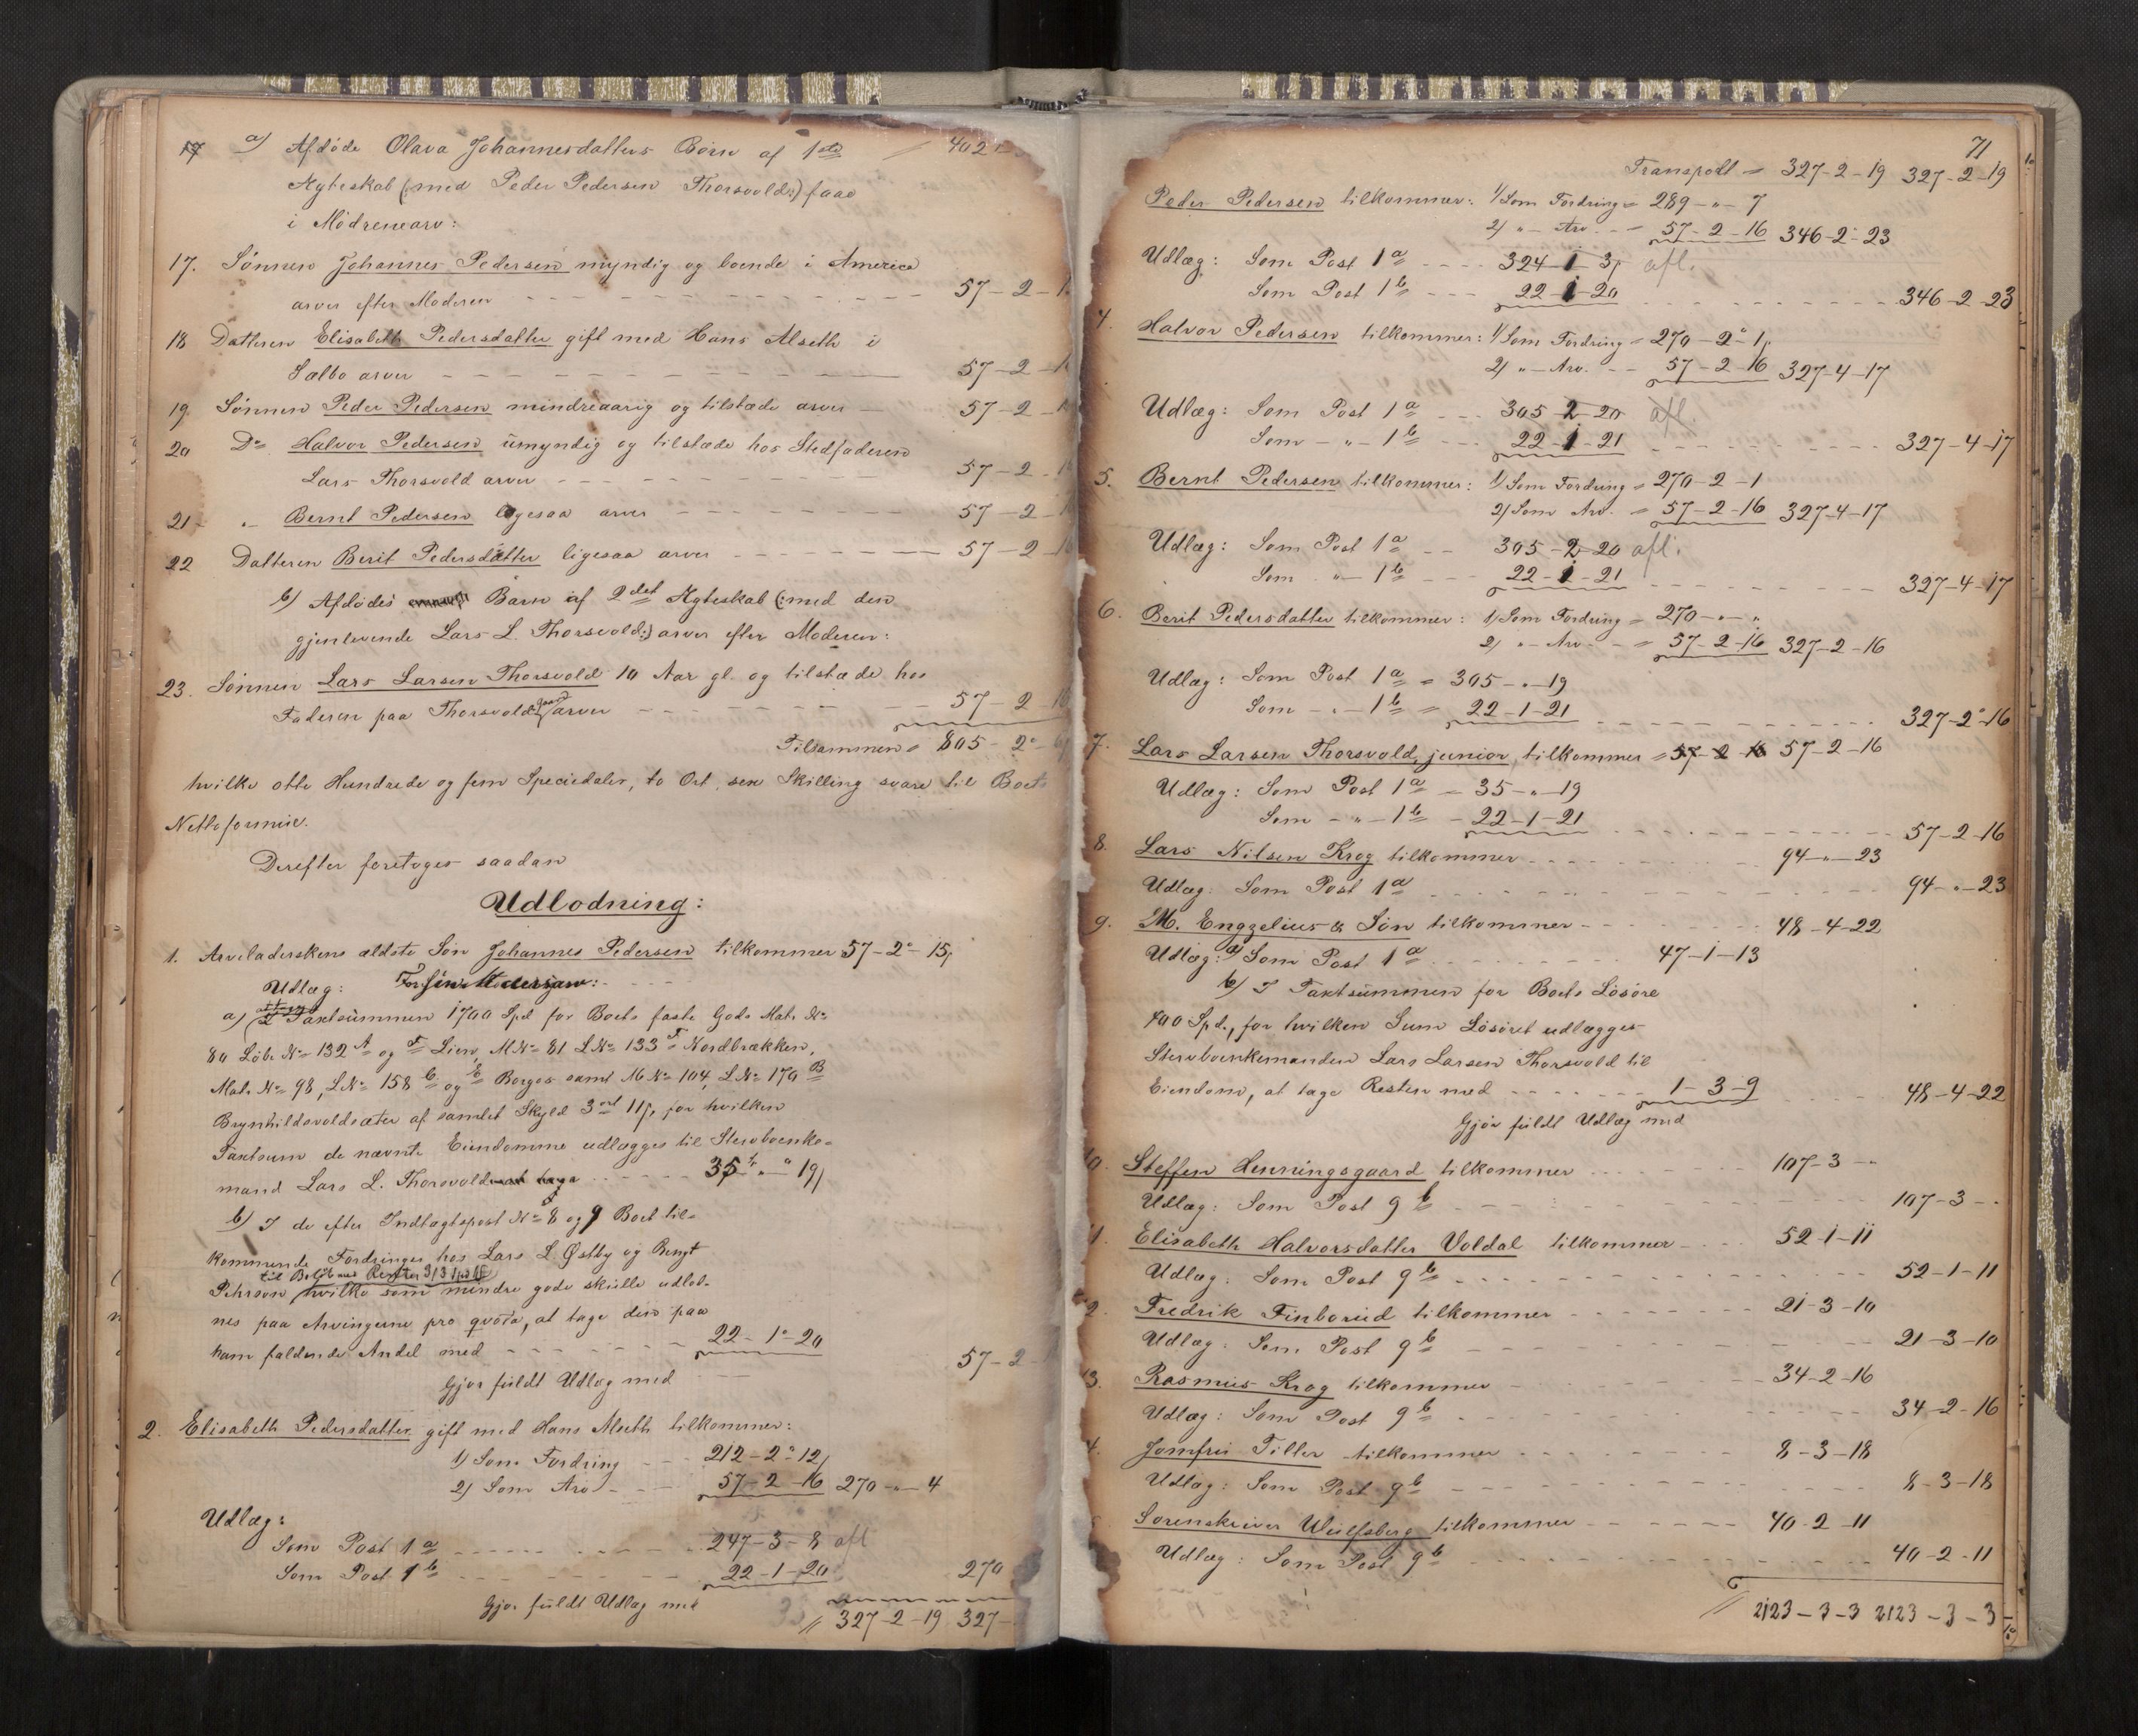 17 a) Afdöde Olava Johannesdatters Börn af 1ste 402
Ægteskab (: med Peder Pedersen Thorsvold :) faae
i Mödrenearv:
17. Sönnen Johannes Pedersen myndig og boende i America
arver efter Moderen - - - 57-2-1
18 Datteren Elisabeth Pedersdatter gift med Hans Alseth i
Sælbo arver - - - 57-2-1
19. Sönnen Peder Pedersen mindreaarig og tilstæde arver - 57-2-1
20 Do Halvor Pedersen umyndig og tilstæde hos Stedfaderen
Lars Thorsvold arver - - - 57-2-1
21 - „- Bernt Pedersen ligesaa arver - - - 57-2-1
22 Datteren Berit Pedersdatter ligesaa arver - - - 57-2-16
b) Afdödes Barn af 2det Ægteskab (: med den
gjenlevende Lars L. Thorsvold :) arver efter Moderen:
23. Sönnen Lars Larsen Thorsvold 10 Aar gl. og tilstæde hos
Faderen paa Thorsvold arver - - - 57-2-16
Tilsammen = 805-2-6
hvilke otte Hundrede og fem Speciedaler, to Ort, sex Skilling svare til Boets
Nettoformue.
Derefter foretoges saadan
Udlodning:
1. Arveladerskens ældste Sön Johannes Pedersen tilkommer 57-2-15
Udlæg: For sin Mödrearv:
a) I Taxtsummen 1700 Spd for Boets faste Gods Mat. No
80 Löbe No 132 A og F Lien, M No 81 L No 133 F Nordbrækken,
Mat. No 98, L No 158 b og E Borgos samt M No 104, L No 170 B
Brynhildsvoldsæter af samlet Skyld 3 ort 11 s, for hvilken
Taxtsum de nævnte Eiendomme udlægges til Stervboenke-
mand Lars L. Thorsvold - - - 35 „ 19
b) I de efter Indtægtspost No 8 og 9 Boet til-
kommende Fordringer hos Lars L. Östby og Bengt
til Belöb med Renter
Pehrson, hvilke som mindre gode skulle udlod-
nes paa Arvingerne pro qvota, at tage den paa
ham faldende Andel med - - - 22-1-20
Gjör fuldt Udlæg med - - 57-2-
2. Elisabeth Pedersdatter gift med Hans Alseth tilkommer:
1) Som Fordring - - 212-2-12
2) Som Arv - - 57-2-16 270-„-4
Udlæg:
Som Post 1 a - - - 247-3-8 afl
Som Post 1 b - - - 22-1-20 270
Gjör fuldt Udlæg med
= 327-2-19 327-
71
Transport = 327-2-19 327-2-19
Peder Pedersen tilkommer: 1) Som Fordring = 289-„-7
2) „- Arv. - = 57-2-16 346-2-23
Udlæg: Som Post 1 a - - - 324-1-3 afl.
Som Post 1 b - - - 22-1-20 - - - 346-2-23
4. Halvor Pedersen tilkommer: 1) Som Fordring = 270-2-1
2) „- Arv. - - 57-2-16 327-4-17
Udlæg: Som Post 1 a - - - 305-2-20 afl.
Som - „- 1 b - - - 22-1-21 - - - 327-4-17
5. Bernt Pedersen tilkommer: 1) Som Fordring = 270-2-1
2) Som Arv. = 57-2-16 327-4-17
Udlæg: Som Post 1 a - - 305-2-20 afl.
Som „- 1 b - - - 22-1-21 - - - 327-4-17
6. Berit Pedersdatter tilkommer: 1) Som Fordring = 270-„-„
2) „- Arv - = 57-2-16 327-2-16
Udlæg: Som Post 1 a = 305-„-19
Som - „- 1 b = 22-1-21 - - - 327-2-16
7. Lars Larsen Thorsvold, junior, tilkommer = 57-2-16 57-2-16
Udlæg: Som Post 1 a - 35-„-19
Som - „- 1 b - 22-1-21 - - - 57-2-16
8. Lars Nilsen Krog tilkommer - - - 94-„-23
Udlæg: Som Post 1 a - - - 94-„-23
9. M. Engzelius & Sön tilkommer - - - 48-4-22
Udlæg: a) Som Post 1 a - - - 47-1-13
b) I Taxtsummen for Boets Lösöre
400 Spd., for hvilken Sum Lösöret udlægges
Stervboenkemanden Lars Larsen Thorsvold til
Eiendom, at tage Resten med - - - 1-3-9 - - - 48-4-22
Gjör fuldt Udlæg med
10. Steffen Henningsgaard tilkommer - - - 107-3-„
Udlæg: Som Post 9 b - - - 107-3-„
11. Elisabeth Halvorsdatter Voldal tilkommer - - - 52-1-11
Udlæg: Som Post 9 b - - - 52-1-11
12. Fredrik Finborud tilkommer - - - 21-3-10
Udlæg: Som Post 9 b - - - 21-3-10
13. Rasmus Krog tilkommer - - - 34-2-16
Udlæg: Som Post 9 b - - - 34-2-16
4. Jomfru Tiller tilkommer - - - 8-3-18
Udlæg: Som Post 9 b - - - 8-3-18
Sorenskriver Wulfsberg tilkommer - - - 40-2-11
Udlæg: Som Post 9 b - - - 40-2-11
= 2123-3-3 2123-3-3